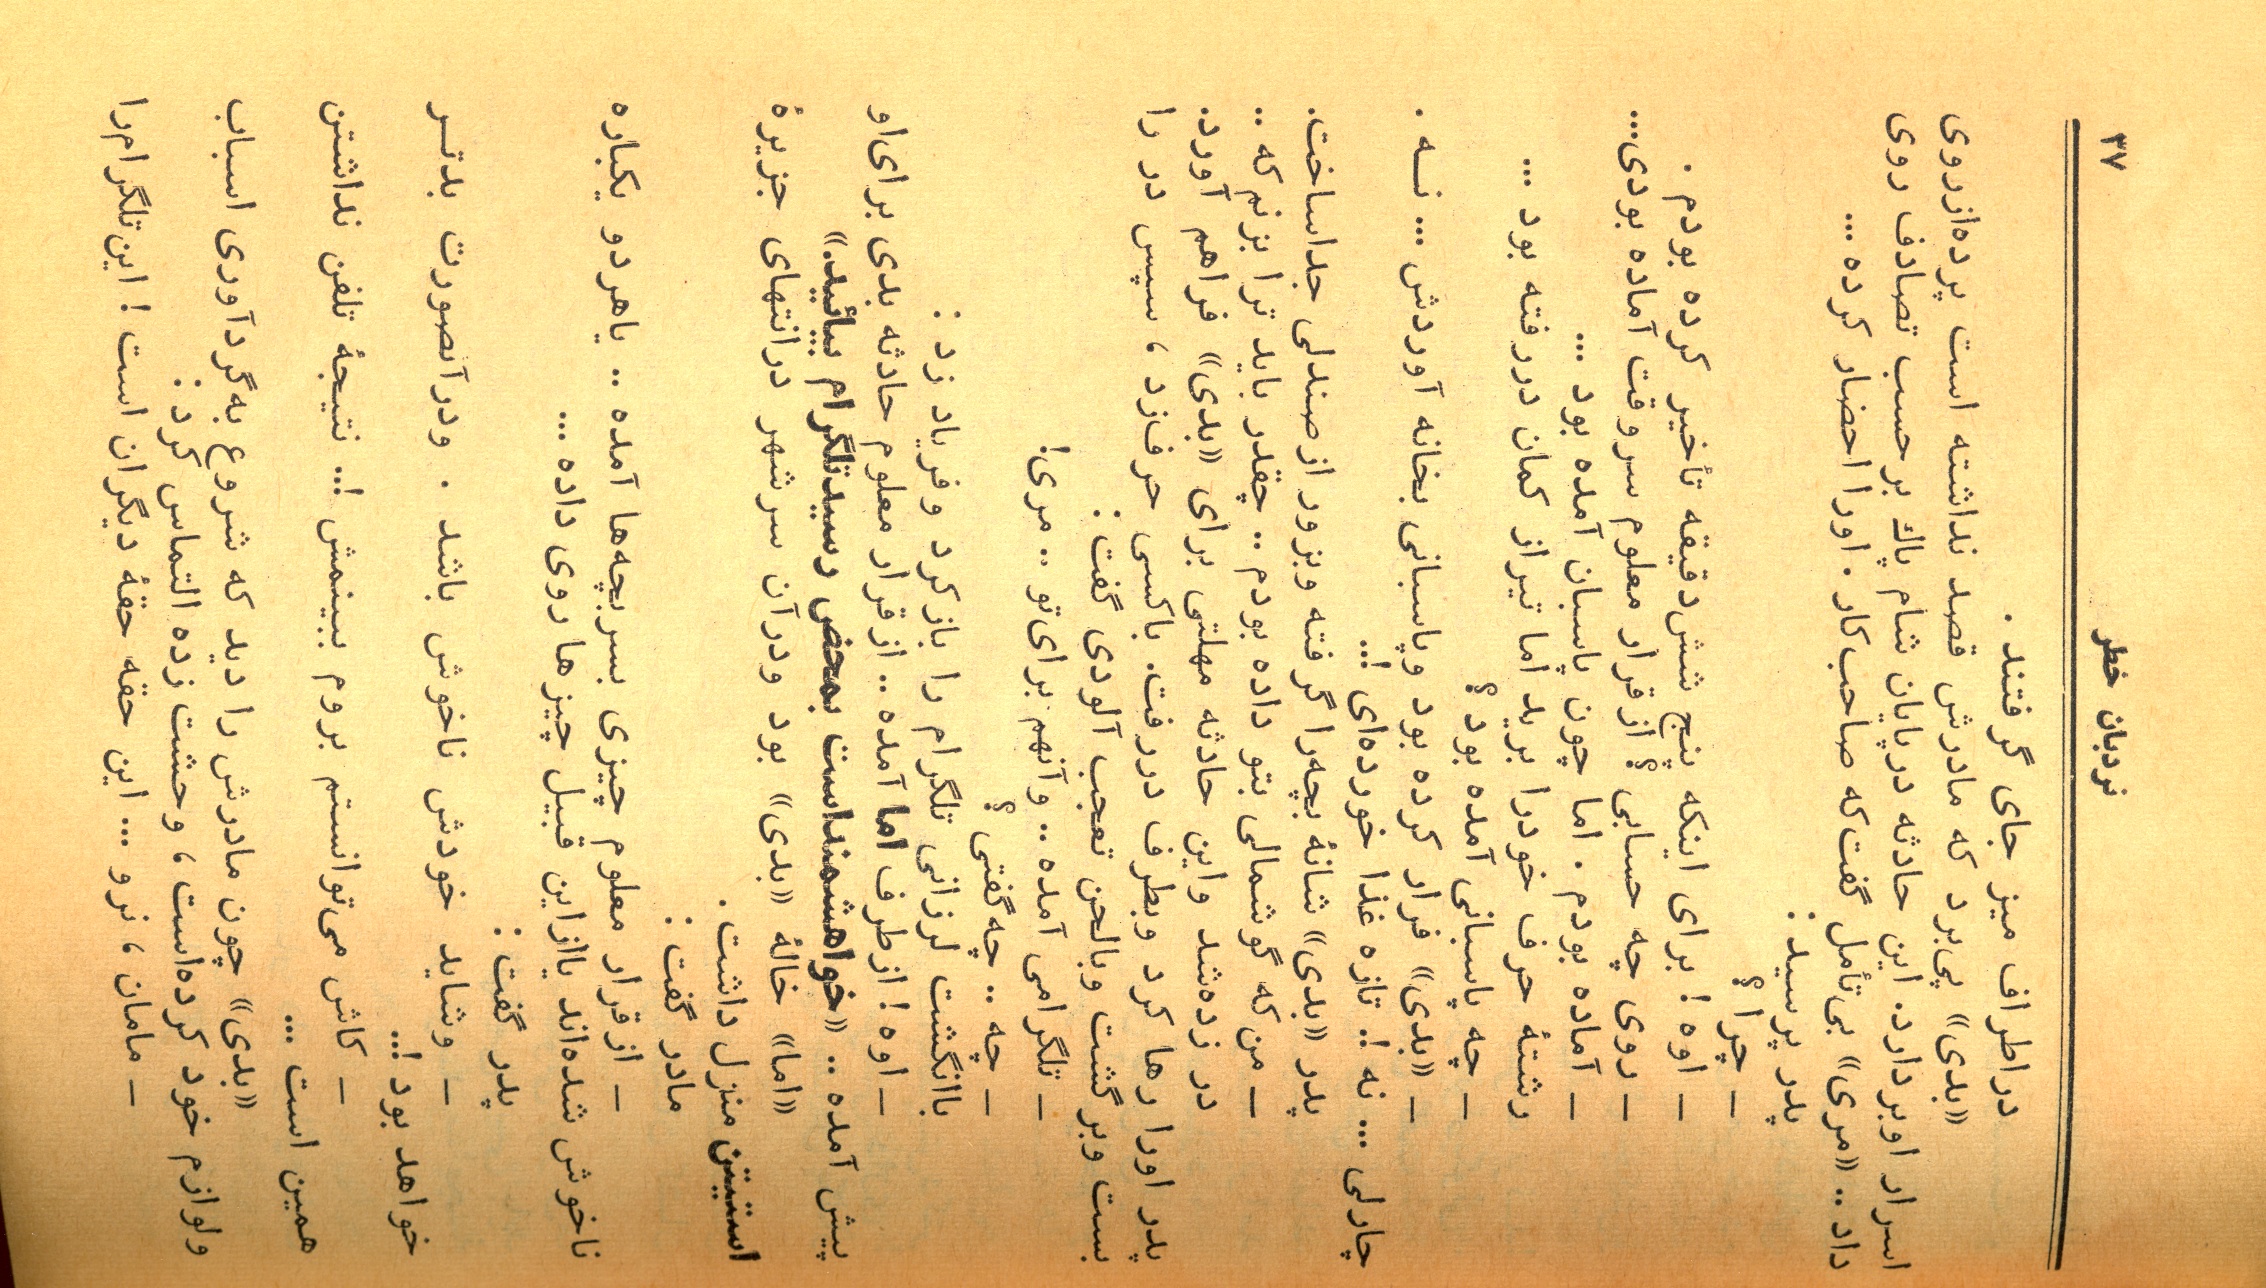 نردبان خطر ۳۷
دراطراف میز جای گرفتند .
«بدی» پی‌برد که مادرش قصد نداشته است پرده‌ازروی
اسرار اوبر دارد. این حادثه درپایان شام پاك برحسب تصادف روی
داد .. «مری» بی‌تأمل گفت‌که صاحب‌کار . اورا احضار کرده ...
پدر پرسید :
ـ چرا ؟
ـ اوه ! برای اینکه پنج شش‌دقیقه تأخیر کرده بودم .
ـ روی چه حسابی ؟ ازقرار معلوم سروقت آماده بودی...
ـ آماده بودم . اما چون پاسبان آمده بود ...
رشتهٔ حرف خودرا برید اما تیراز کمان دررفته بود ...
ـ چه پاسبانی آمده بود ؟
ـ «بدی» فرار کرده بود وپاسبانی بخانه آوردش ... نـه .
چارلی ... نه !. تازه غذا خورده‌ای !..
پدر «بدی» شانهٔ بچه‌را گرفته وبزور ازصندلی جداساخت.
ـ من که گوشمالی بتو داده بودم .. چقدر باید ترا بزنم که ..
در زده‌شد واین حادثه مهلتی برای «بدی» فراهم آورد.
پدر اورا رها کرد وبطرف دررفت. باکسی حرف‌زد ، سپس در را
بست وبرگشت وبالحن تعجب آلودی گفت :
ـ تلگرامی آمده .. وآنهم برای‌تو .. مری!
ـ چه .. چه‌گفتی ؟
باانگشت لرزانی تلگرام را بازکرد وفریاد زد :
ـ اوه ! ازطرف اما آمده .. ازقرار معلوم حادثه بدی برای‌او
پیش آمده .. «خواهشمنداست بمحض رسیدتلگرام بیائید.»
«اما» خالهٔ «بدی» بود ودرآن سرشهر درانتهای جزیرهٔ
استیتن منزل داشت .
مادر گفت :
ـ ازقرار معلوم چیزی بسربچه‌ها آمده .. یاهردو یکباره
ناخوش شده‌اند یاازاین قبیل چیزها روی داده ...
پدر گفت :
ـ وشاید خودش ناخوش باشد . ودرآنصورت بدتـر
خواهد بود !..
ـ کاش می‌توانستم بروم ببینمش !.. نتیجهٔ تلفن نداشتن
همین است ...
«بدی» چون مادرش را دید که شروع به‌گردآوری اسباب
ولوازم خود کرده‌است ، وحشت زده التماس کرد :
ـ مامان ، نرو ... این حقه حقهٔ دیگران است ! این‌تلگرام‌را